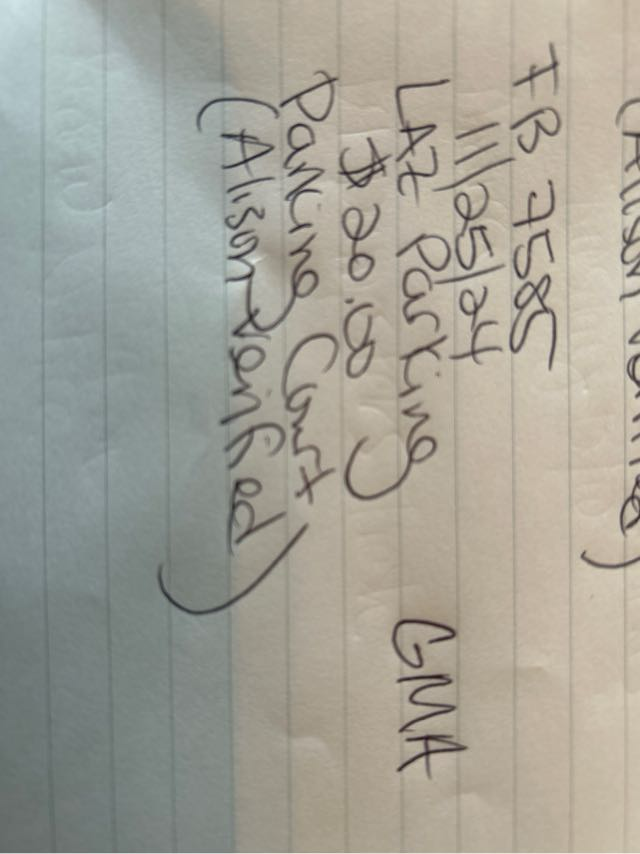 (Alison Verified)
FB 7585
11/25/24
LAZ Parking GMA
$20.00
Parking Court
(Alison Verified)